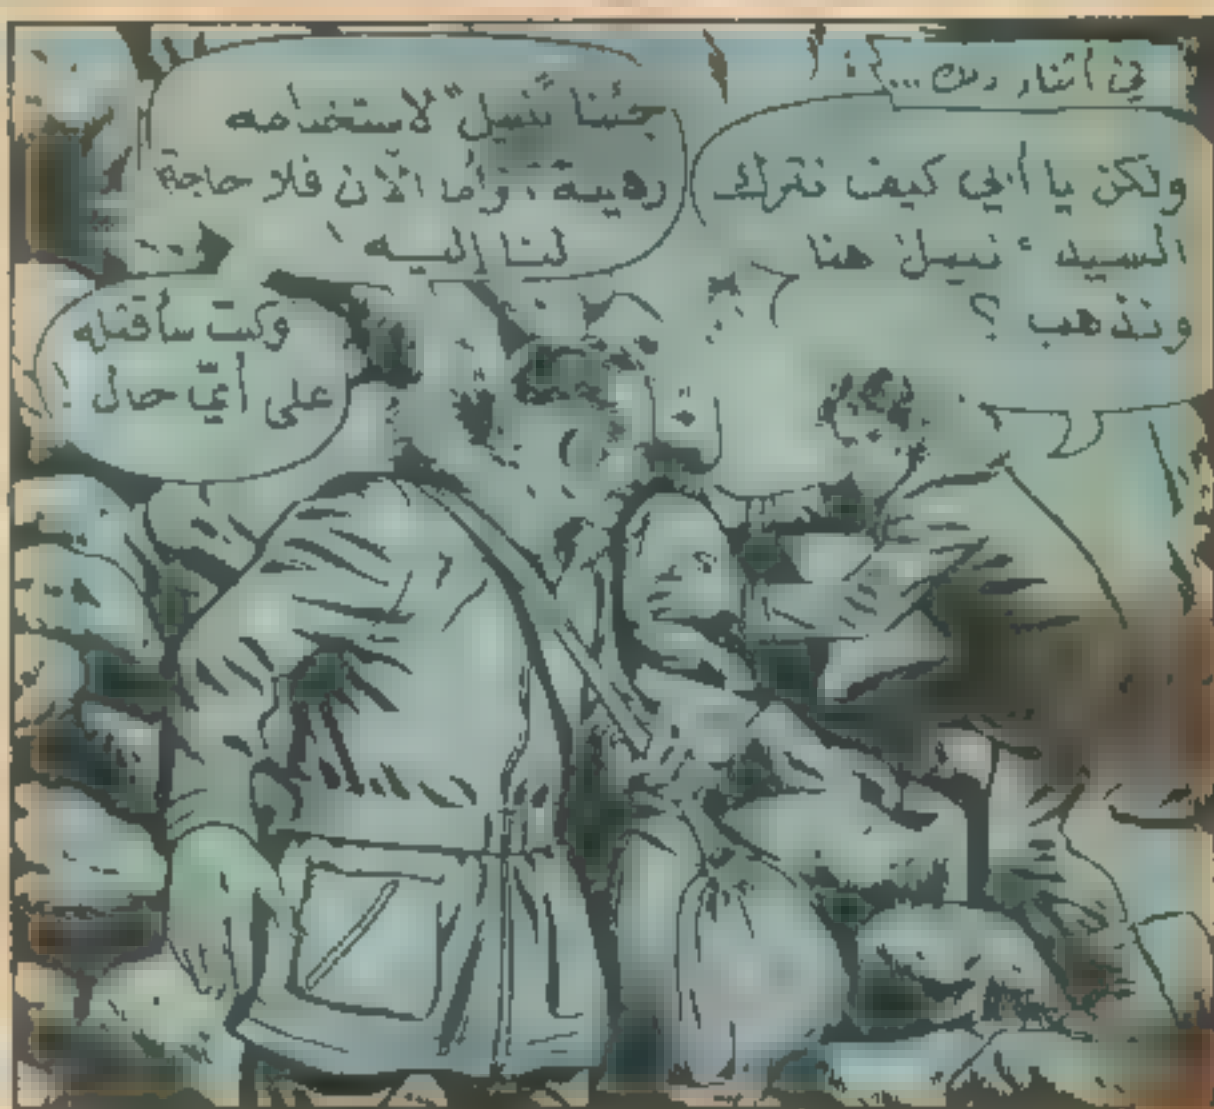 في أثناء ذلك ...
ولكن يا أبي كيف نترك
السيد " نبيل " هنا
ونذهب ؟
جئنا بـ " نبيل " لاستخدامه
رهينة ، وأما الآن فلا حاجة
لنا إليه
وكنت سأقتله
على أيّ حال !